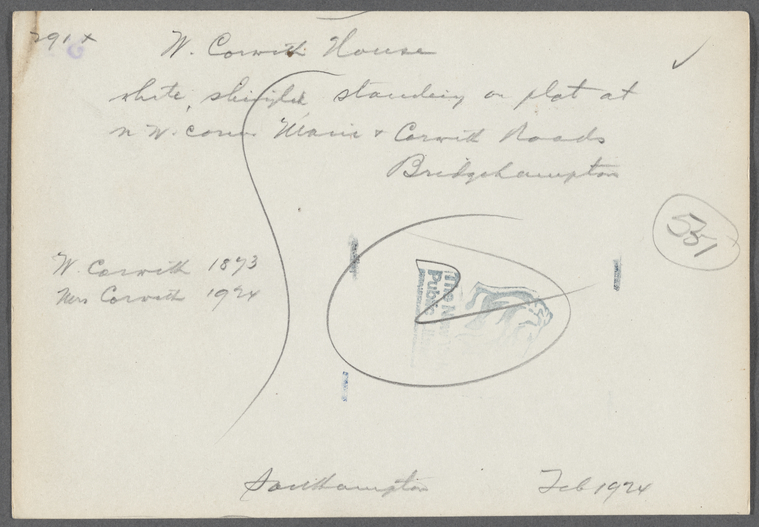 291 x
W. Corwith House
white, shingled standing on plot at
n.w. corner Main & Corwith Roads
Bridgehampton
551
W. Corwith 1873
Mrs Corwith 1924
The New
Public
Southampton Feb 1924